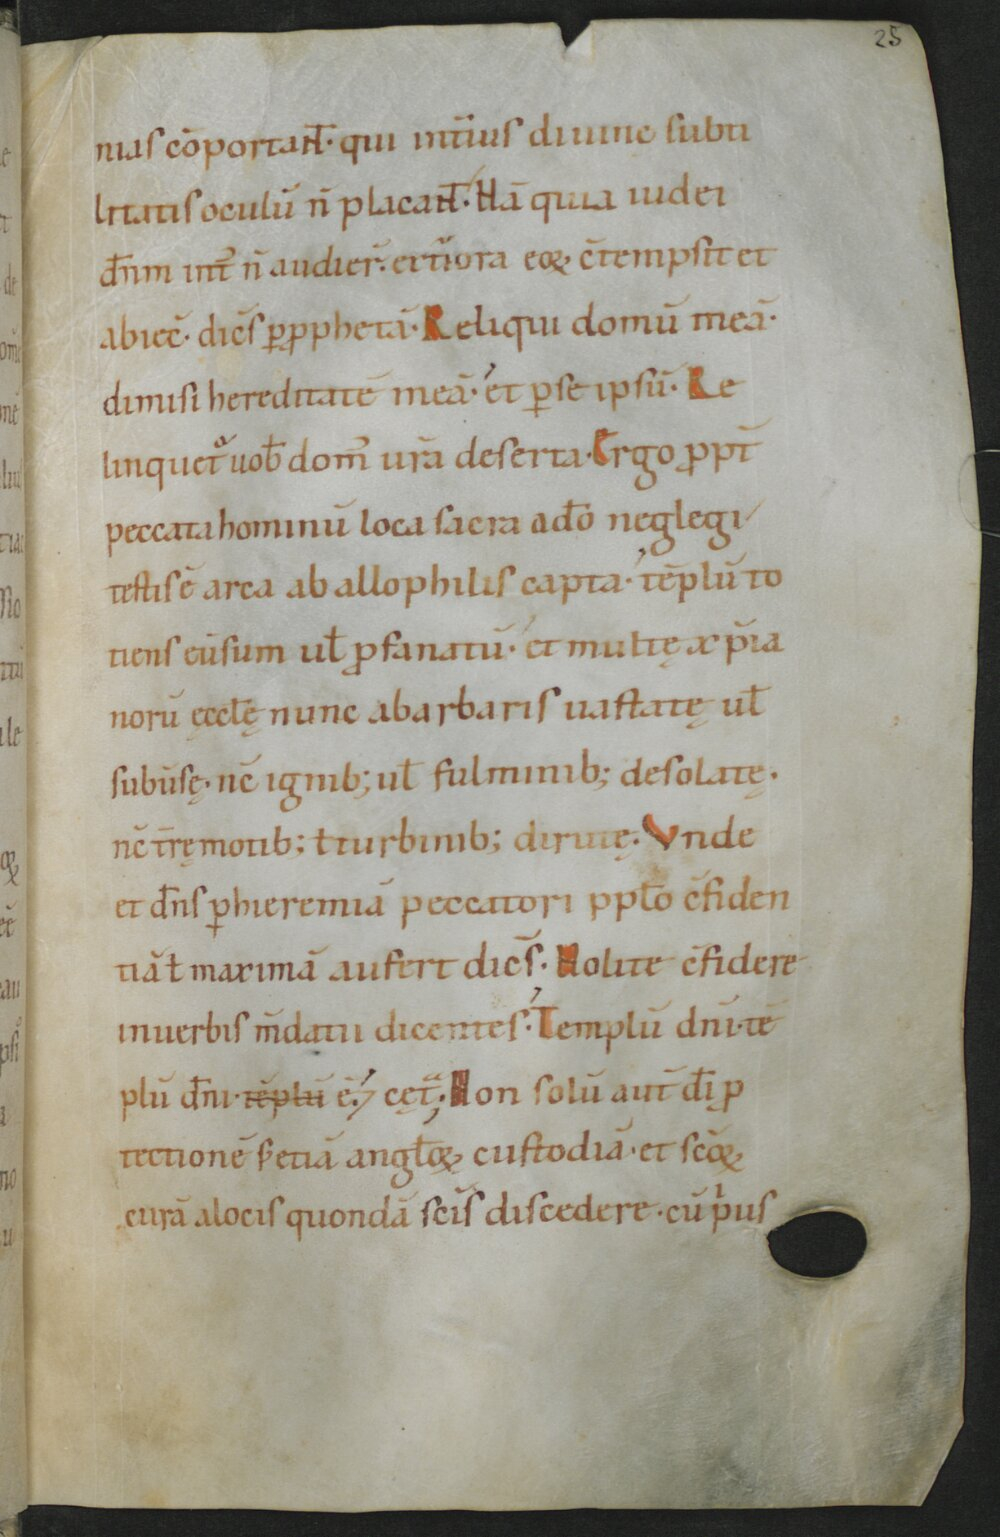 25
nias cōportaɴ̄t· qui int̄ius diuine subti
litatis oculū n̄ placaɴ̄t· Nā quia iudei
dn̄m int̄ n̄ audier̄· ext̄iora eoꝝ c̄tempsit et
abiec̄· dic̄s ꝑ ꝓphetā· Reliqui domū meā·
dimisi hereditatē meā· et ꝑ se ipsū· Re
linquet͛ uob̄ dom̄ ur̄a deserta· Ergo ꝓpt̄
peccata hominū loca sacra a do̅ neglegi
testis ē arca ab allophilis capta· tēplū to
tiens eūsum ul̄ ꝓfanatū· et multę xp̄ia
norū ęccl̄ę nunc a barbaris uastatę ul̄
subūsę· nc̄ ignib; ul̄ fulminib; desolatę·
nc̄ t̄rę motib; ł turbinib; dirutę· Vnde
et dn̄s ꝑ hieremiā peccatori ppl̄o c̄fiden
tiā ł maximā aufert dic̄s· Nolite c̄fidere
in uerbis m̄datii dicentes· Templū dn̄i· tē
plū dn̄i· tēplū ē· ⁊ cęt̄· Non solū aut̄ di̅ ꝓ
tectionē s; etiā angl̄oꝝ custodiā· et sc̄oꝝ
curā a locis quondā sc̄is discedere· cū p̄us